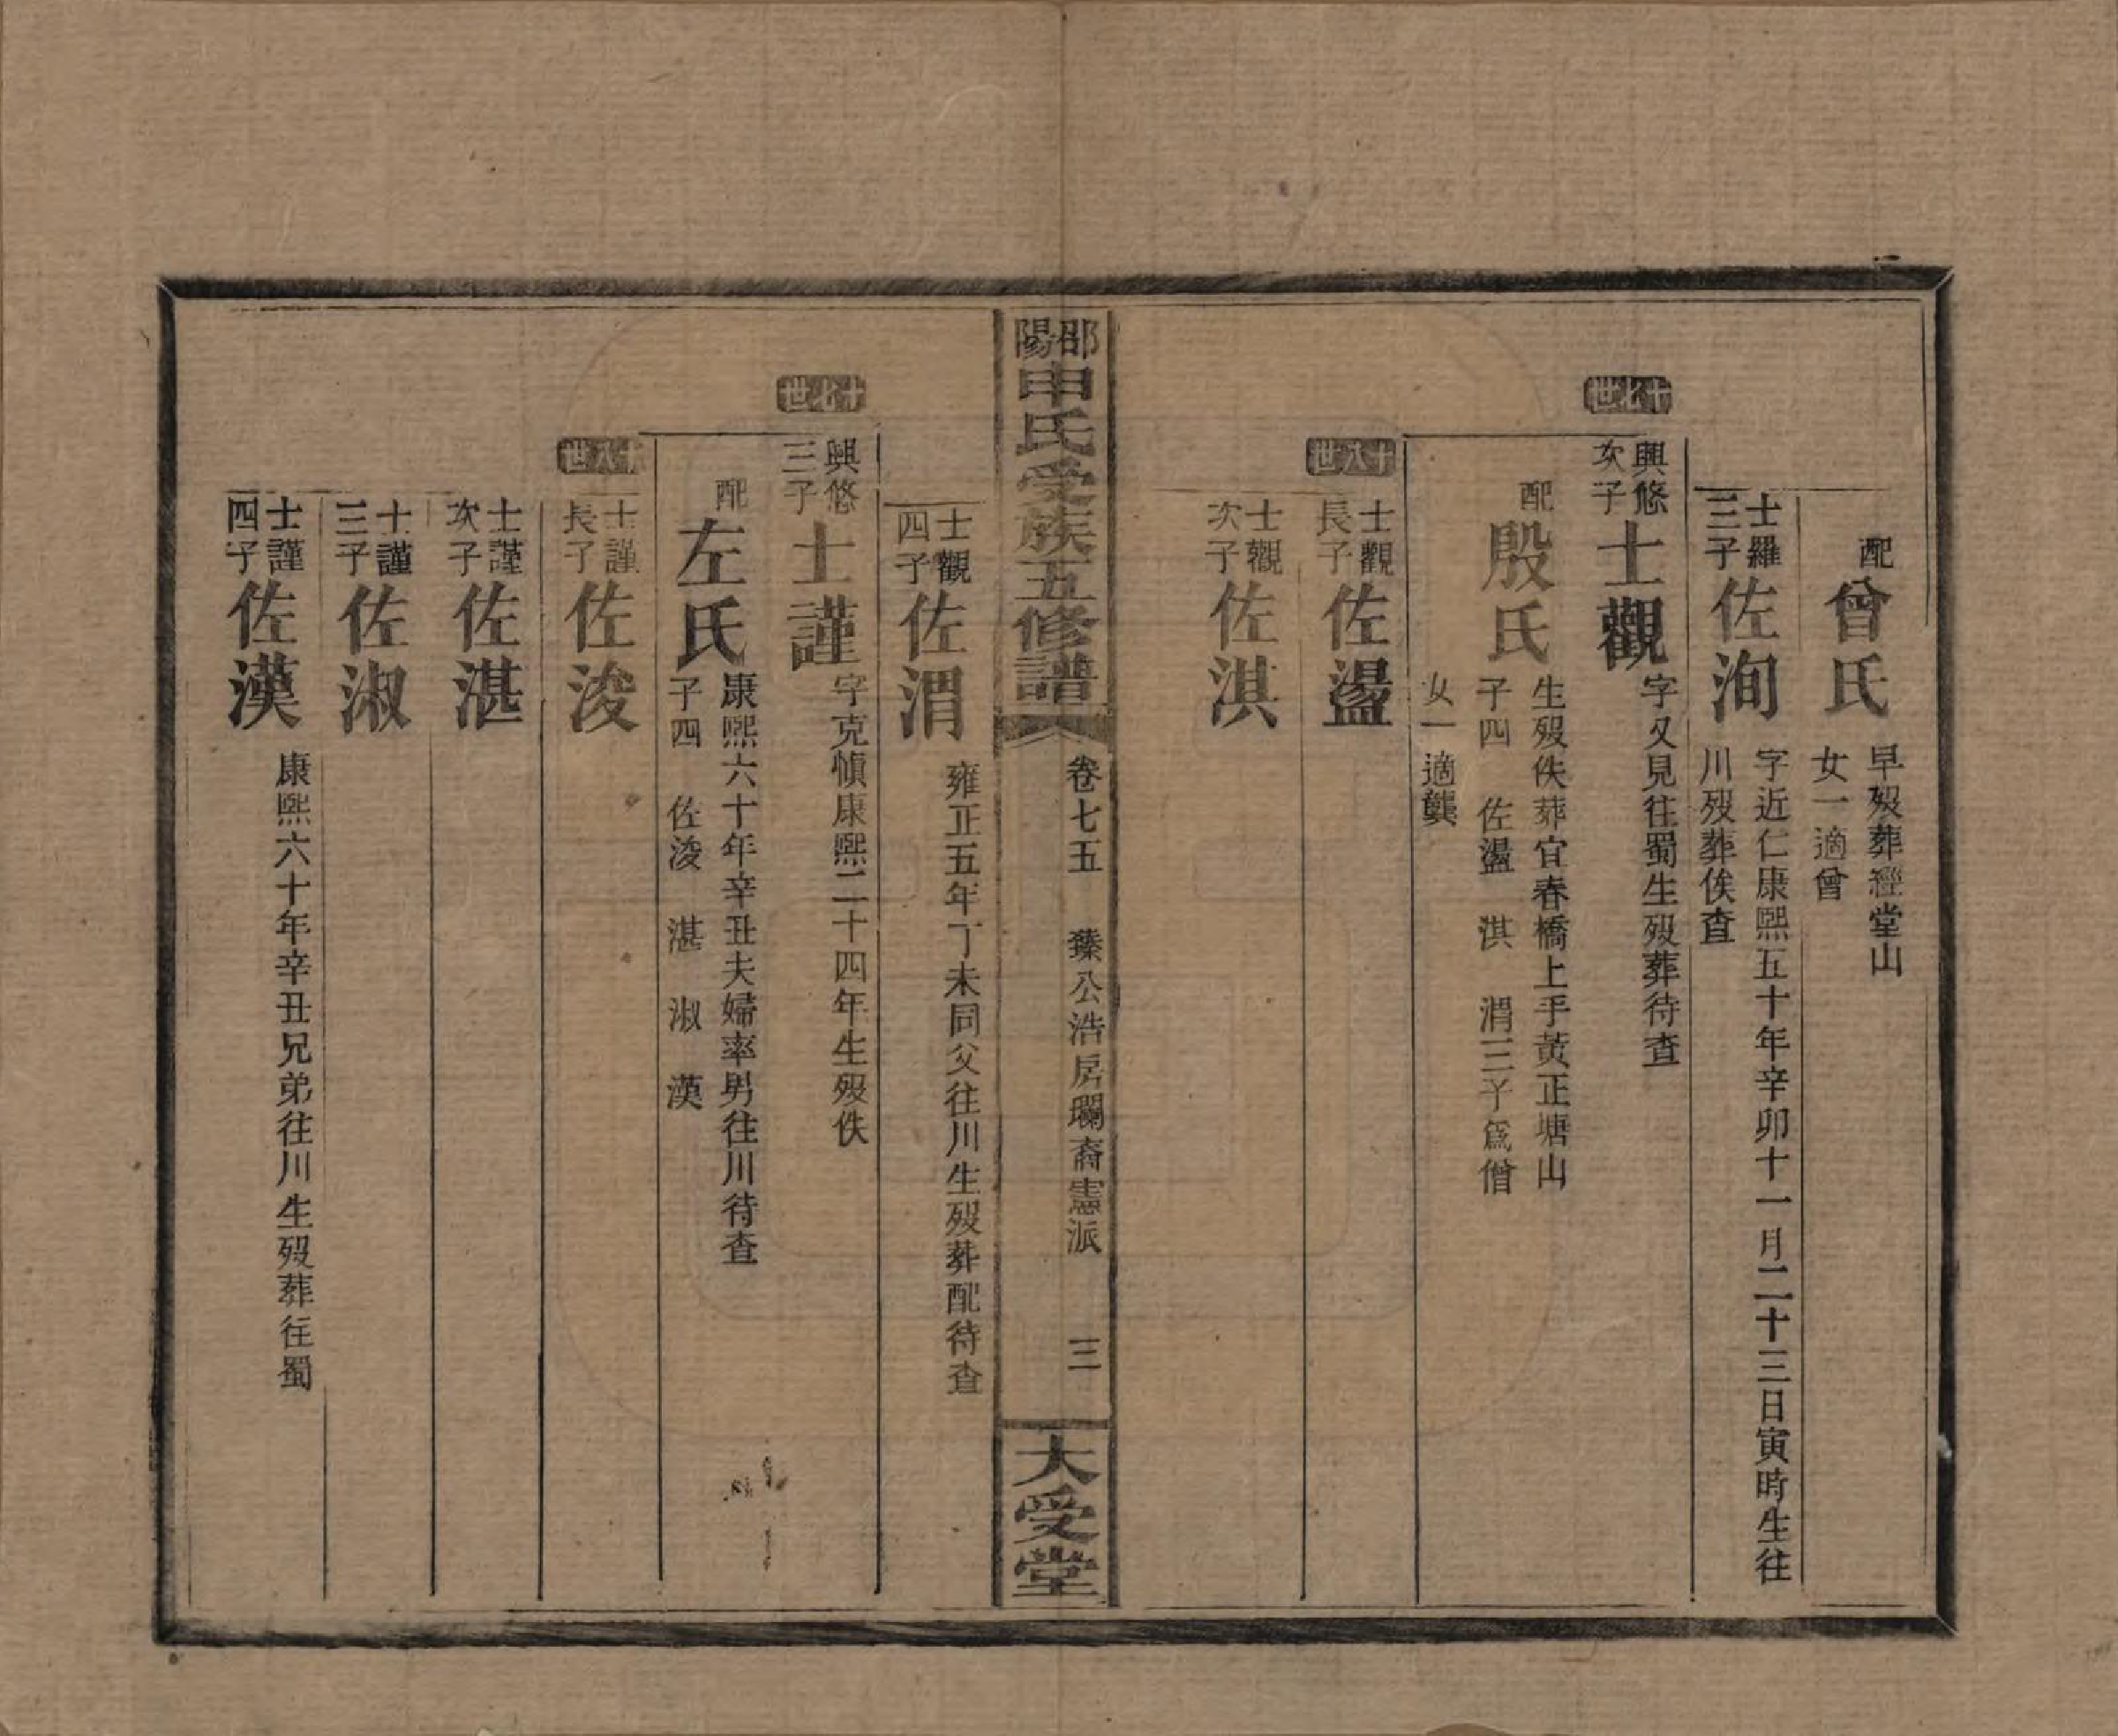 配曾氏
早殁葬經堂山
女一適曾
士羅三子佐洵
字近仁康熙五十年辛卯十一月二十三日寅時生往
川殁葬俟查
十七世
興悠次子士觀
字又見往蜀生殁葬待查
配殷氏
生殁佚葬宜春橋上手黃正塘山
子四 佐盪 淇 渭三子爲僧
女一適龔
十八世
士觀長子佐盪
士觀次子佐淇
邵陽申氏受族五修譜
卷七五 蓁公浩房瓓裔憲派 三
大受堂
士觀四子佐渭
雍正五年丁未同父往川生殁葬配待查
十七世
興悠三子士謹
字克愼康熙二十四年生殁佚
配左氏
康熙六十年辛丑夫婦率男往川待查
子四 佐浚 湛 淑 漢
十八世
士謹長子佐浚
士謹次子佐湛
士謹三子佐淑
士謹四子佐漢
康熙六十年辛丑兄弟往川生殁葬在蜀